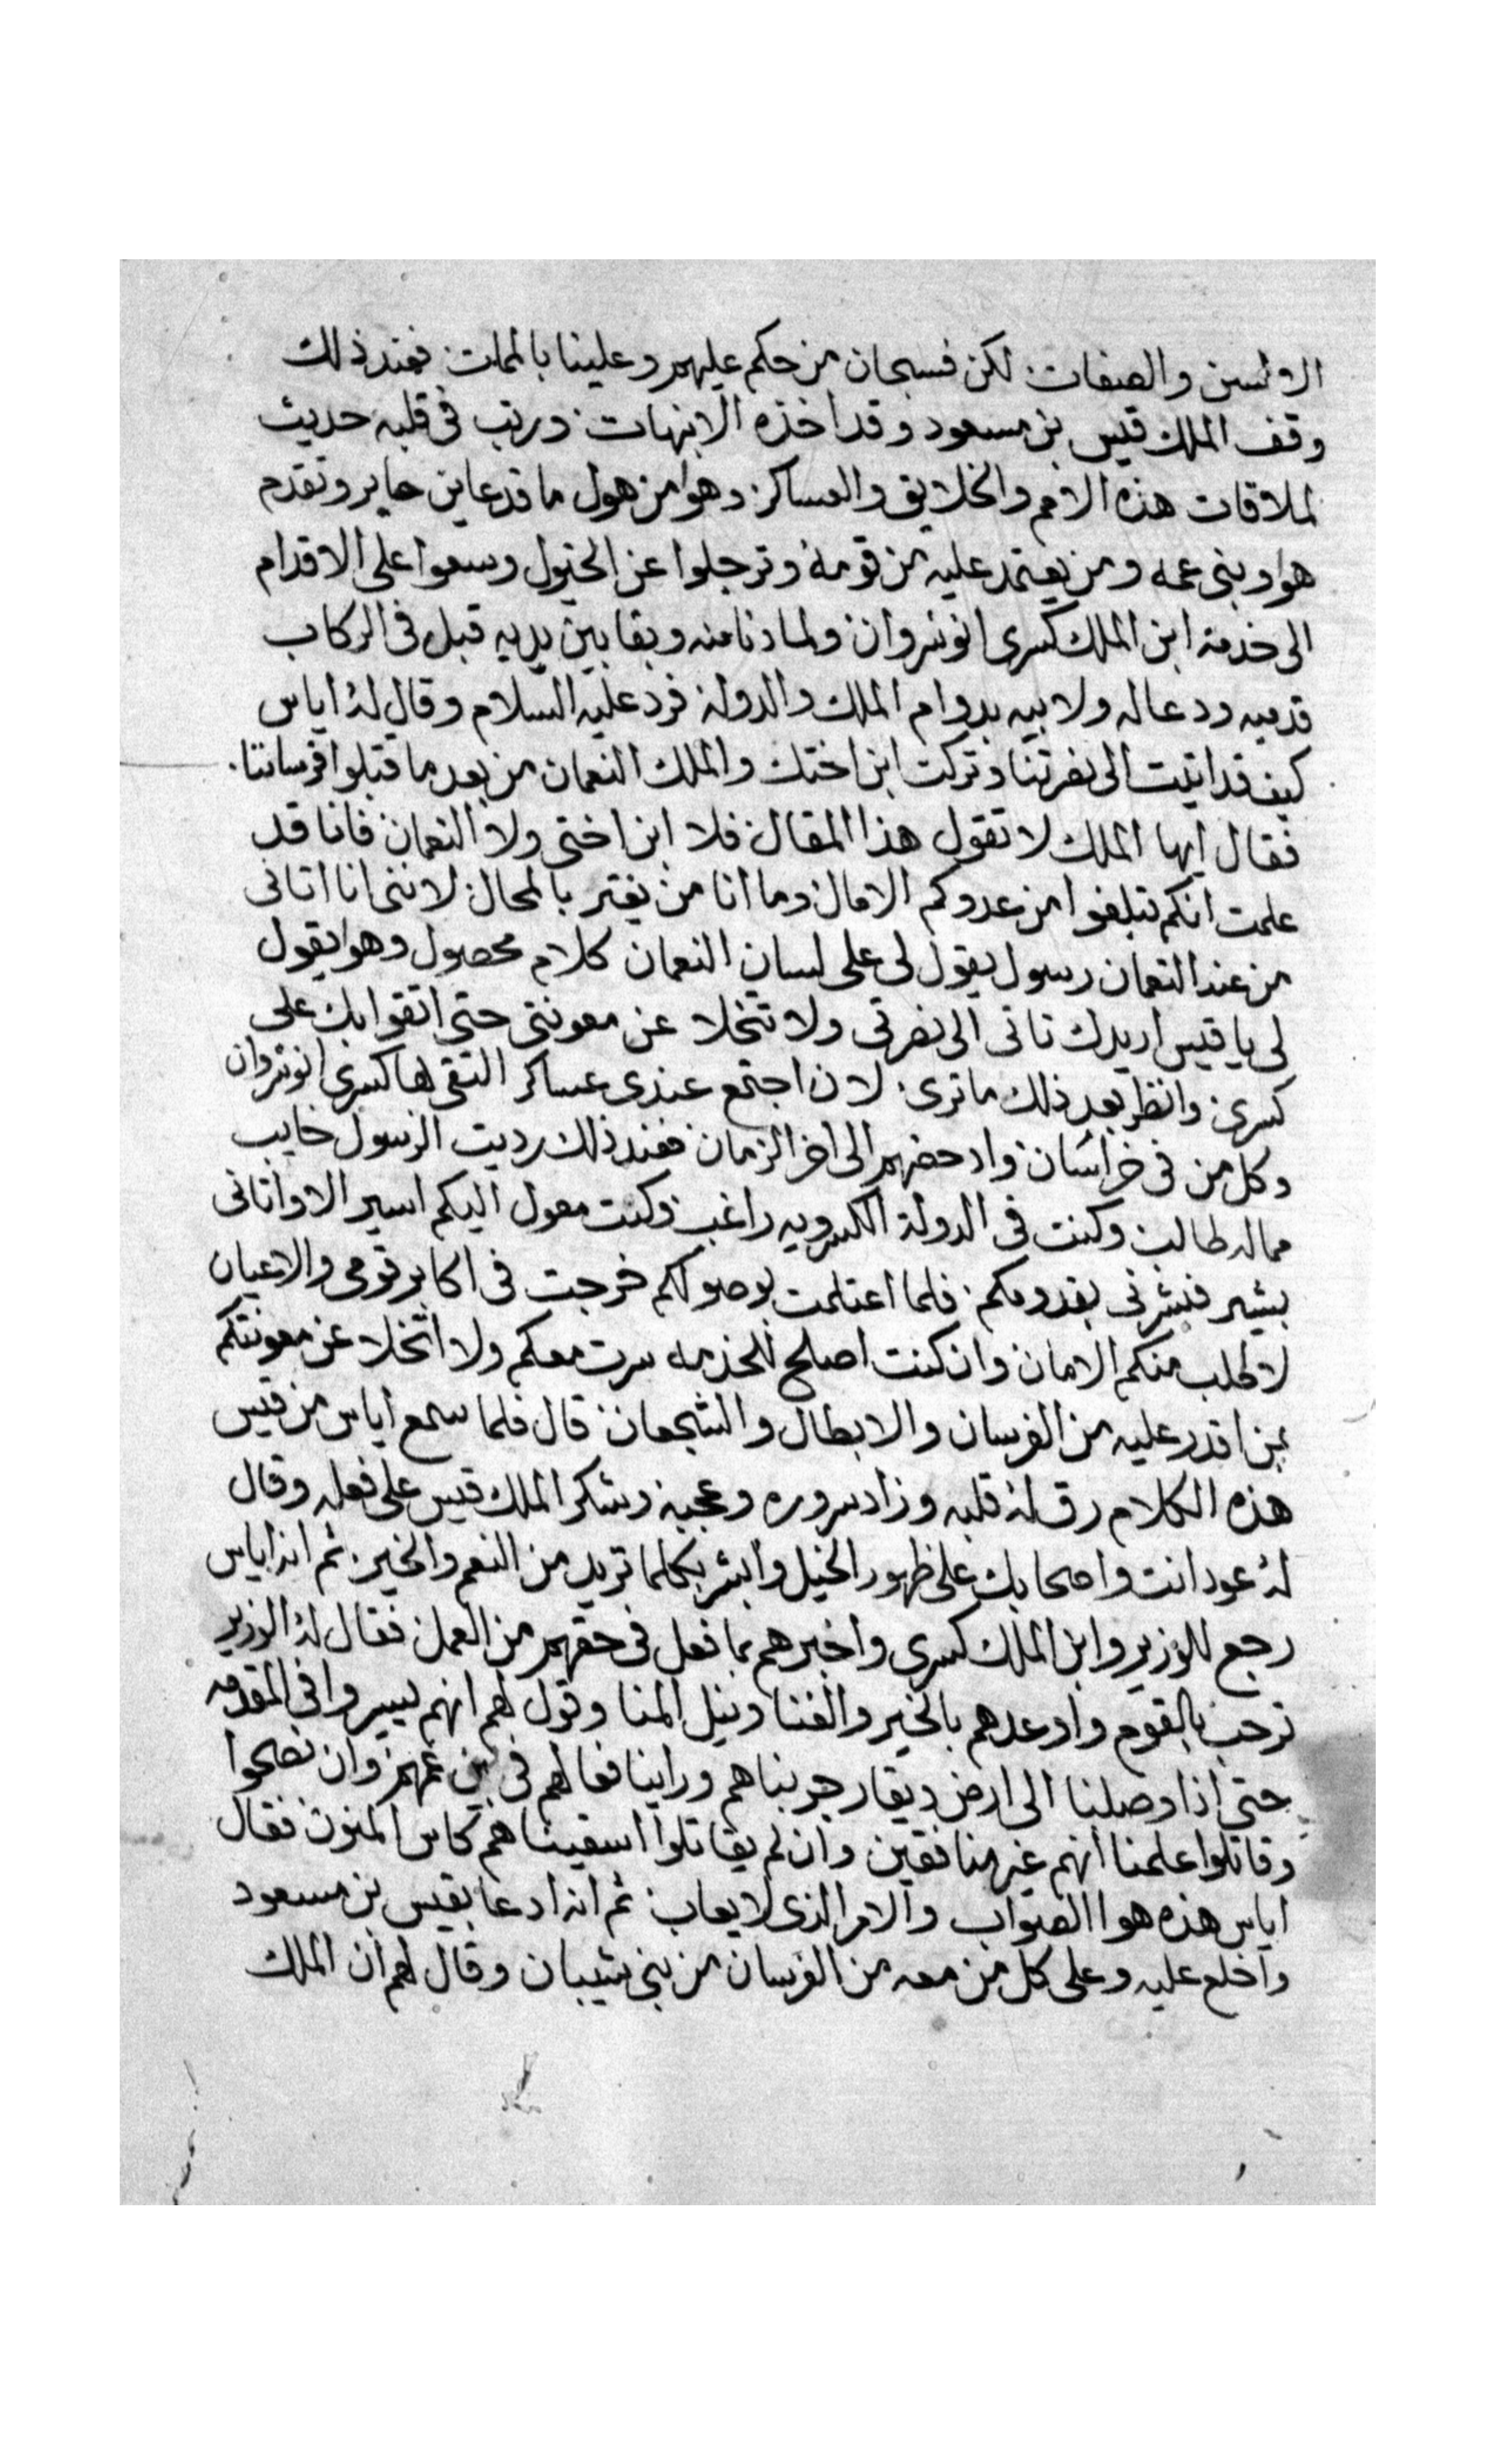 الالسن والصفات: لكن فسبحان من حكم عليهم وعلينا بالممات: فعند ذلك
وقف الملك قيس بن مسعود وقد اخذه الانبهات: ورتب فى قلبه حديث
لملاقات هذه الامم والخلايق والعساكر: وهوا من هول ما قد عاين حاير وتقدم
هوا وبنى عمه ومن يعتمد عليه من قومه وترجلوا عن الخيول وسعوا على الاقدام
الى خدمة ابن الملك كسرى انوشروان: ولما دنا منه وبقا بين يديه قبل فى الركاب
قدميه ودعا له ولابيه بدوام الملك والدولة: فرد عليه السلام وقال له اياس
كيف قد اتيت الى نصرتنا وتركت ابن اختك والملك النعمان من بعد ما قتلوا فرساننا.
فقال ايها الملك لا تقول هذا المقال: فلا ابن اختى ولا النعمان: فانا قد
علمت انكم تبلغوا من عدوكم الامال: وما انا من يغتر بالمحال: لاننى انا اتانى
من عند النعمان رسول يقول لى على لسان النعمان كلام محصول وهوا يقول
لى يا قيس اريدك تاتى الى نصرتى ولا تتخلا عن معونتى حتى اتقوا بك على
كسرى: وانظر بعد ذلك ما ترى: لان اجتمع عندى عساكر التقى بها كسرى انوشروان
وكل من فى خراسان: وادحضهم الى اخر الزمان: فعند ذلك رديت الرسول خايب
مما له طالب: وكنت فى الدولة الكسرويه راغب: وكنت معول اليكم اسير الا واتانى
بشير فبشرنى بقدومكم: فلما اعتلمت بوصولكم خرجت فى اكابر قومى والاعيان
لاطلب منكم الامان: وان كنت اصلح للخدمه سرت معكم ولا اتخلا عن معونتكم
بمن اقدر عليه من الفرسان والابطال والشجعان: قال فلما سمع اياس من قيس
هذه الكلام رق له قلبه وزاد سروره وعجبه: وشكر الملك قيس على فعله وقال
له عود انت واصحابك على ظهور الخيل وابشر بكلما تريد من النعم والخير: ثم انه اياس
رجع للوزير وابن الملك كسرى واخبرهم بما فعل فى حقهم من العمل: فقال له الوزير
ترحب بالقوم واوعدهم بالخير والغنا ونيل المنا وقول لهم انهم يسيروا فى المقدمه
حتى اذا وصلنا الى ارض ذيقار جربناهم وراينا فعالهم فى بين عمهم: وان نصحوا
وقاتلوا علمنا انهم غير منافقين وان لم يقاتلوا اسقيناهم كاس المنون: فقال
اياس هذه هوا الصواب والامر الذى لا يعاب: ثم انه ادعا بقيس بن مسعود
واخلع عليه وعلى كل من معه من الفرسان من بنى شيبان وقال لهم ان الملك